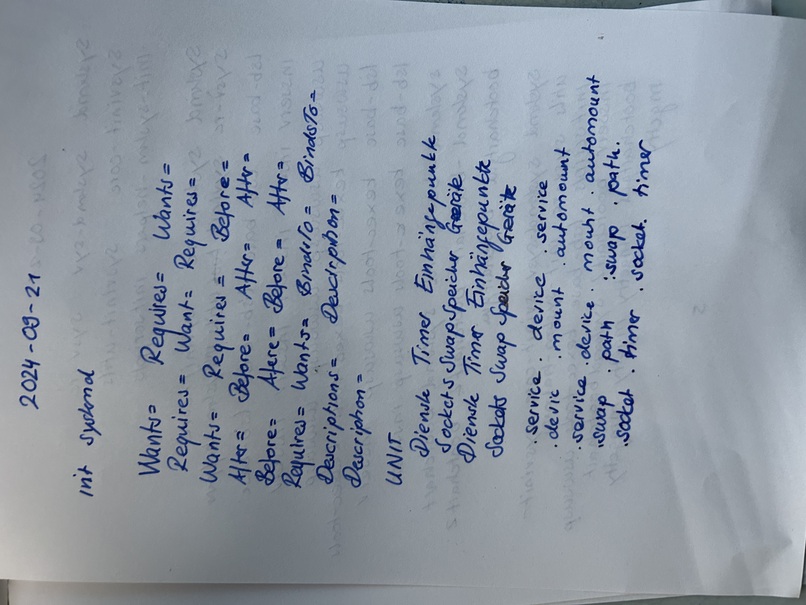 2024-09-21
init systemd
Wants= Requires= Wants=
Requires= Want= Requires=
Wants= Requires= Before=
After= Before= After= After=
Before= Afere= Before= After=
Requires= Wants= BindsTo= BindsTo=
Descriptions= Description=
Description=
UNIT
Dienste Timer Einhängepunkte
Sockets Swapspeicher Geräte
Dienste Timer Einhängepunkte
Sockets Swap Speicher Geräte
.service .device .service
.devic .mount .automount
.service .device .mount .automount
.swap .path .swap .path.
.socket .timer .socket. timer